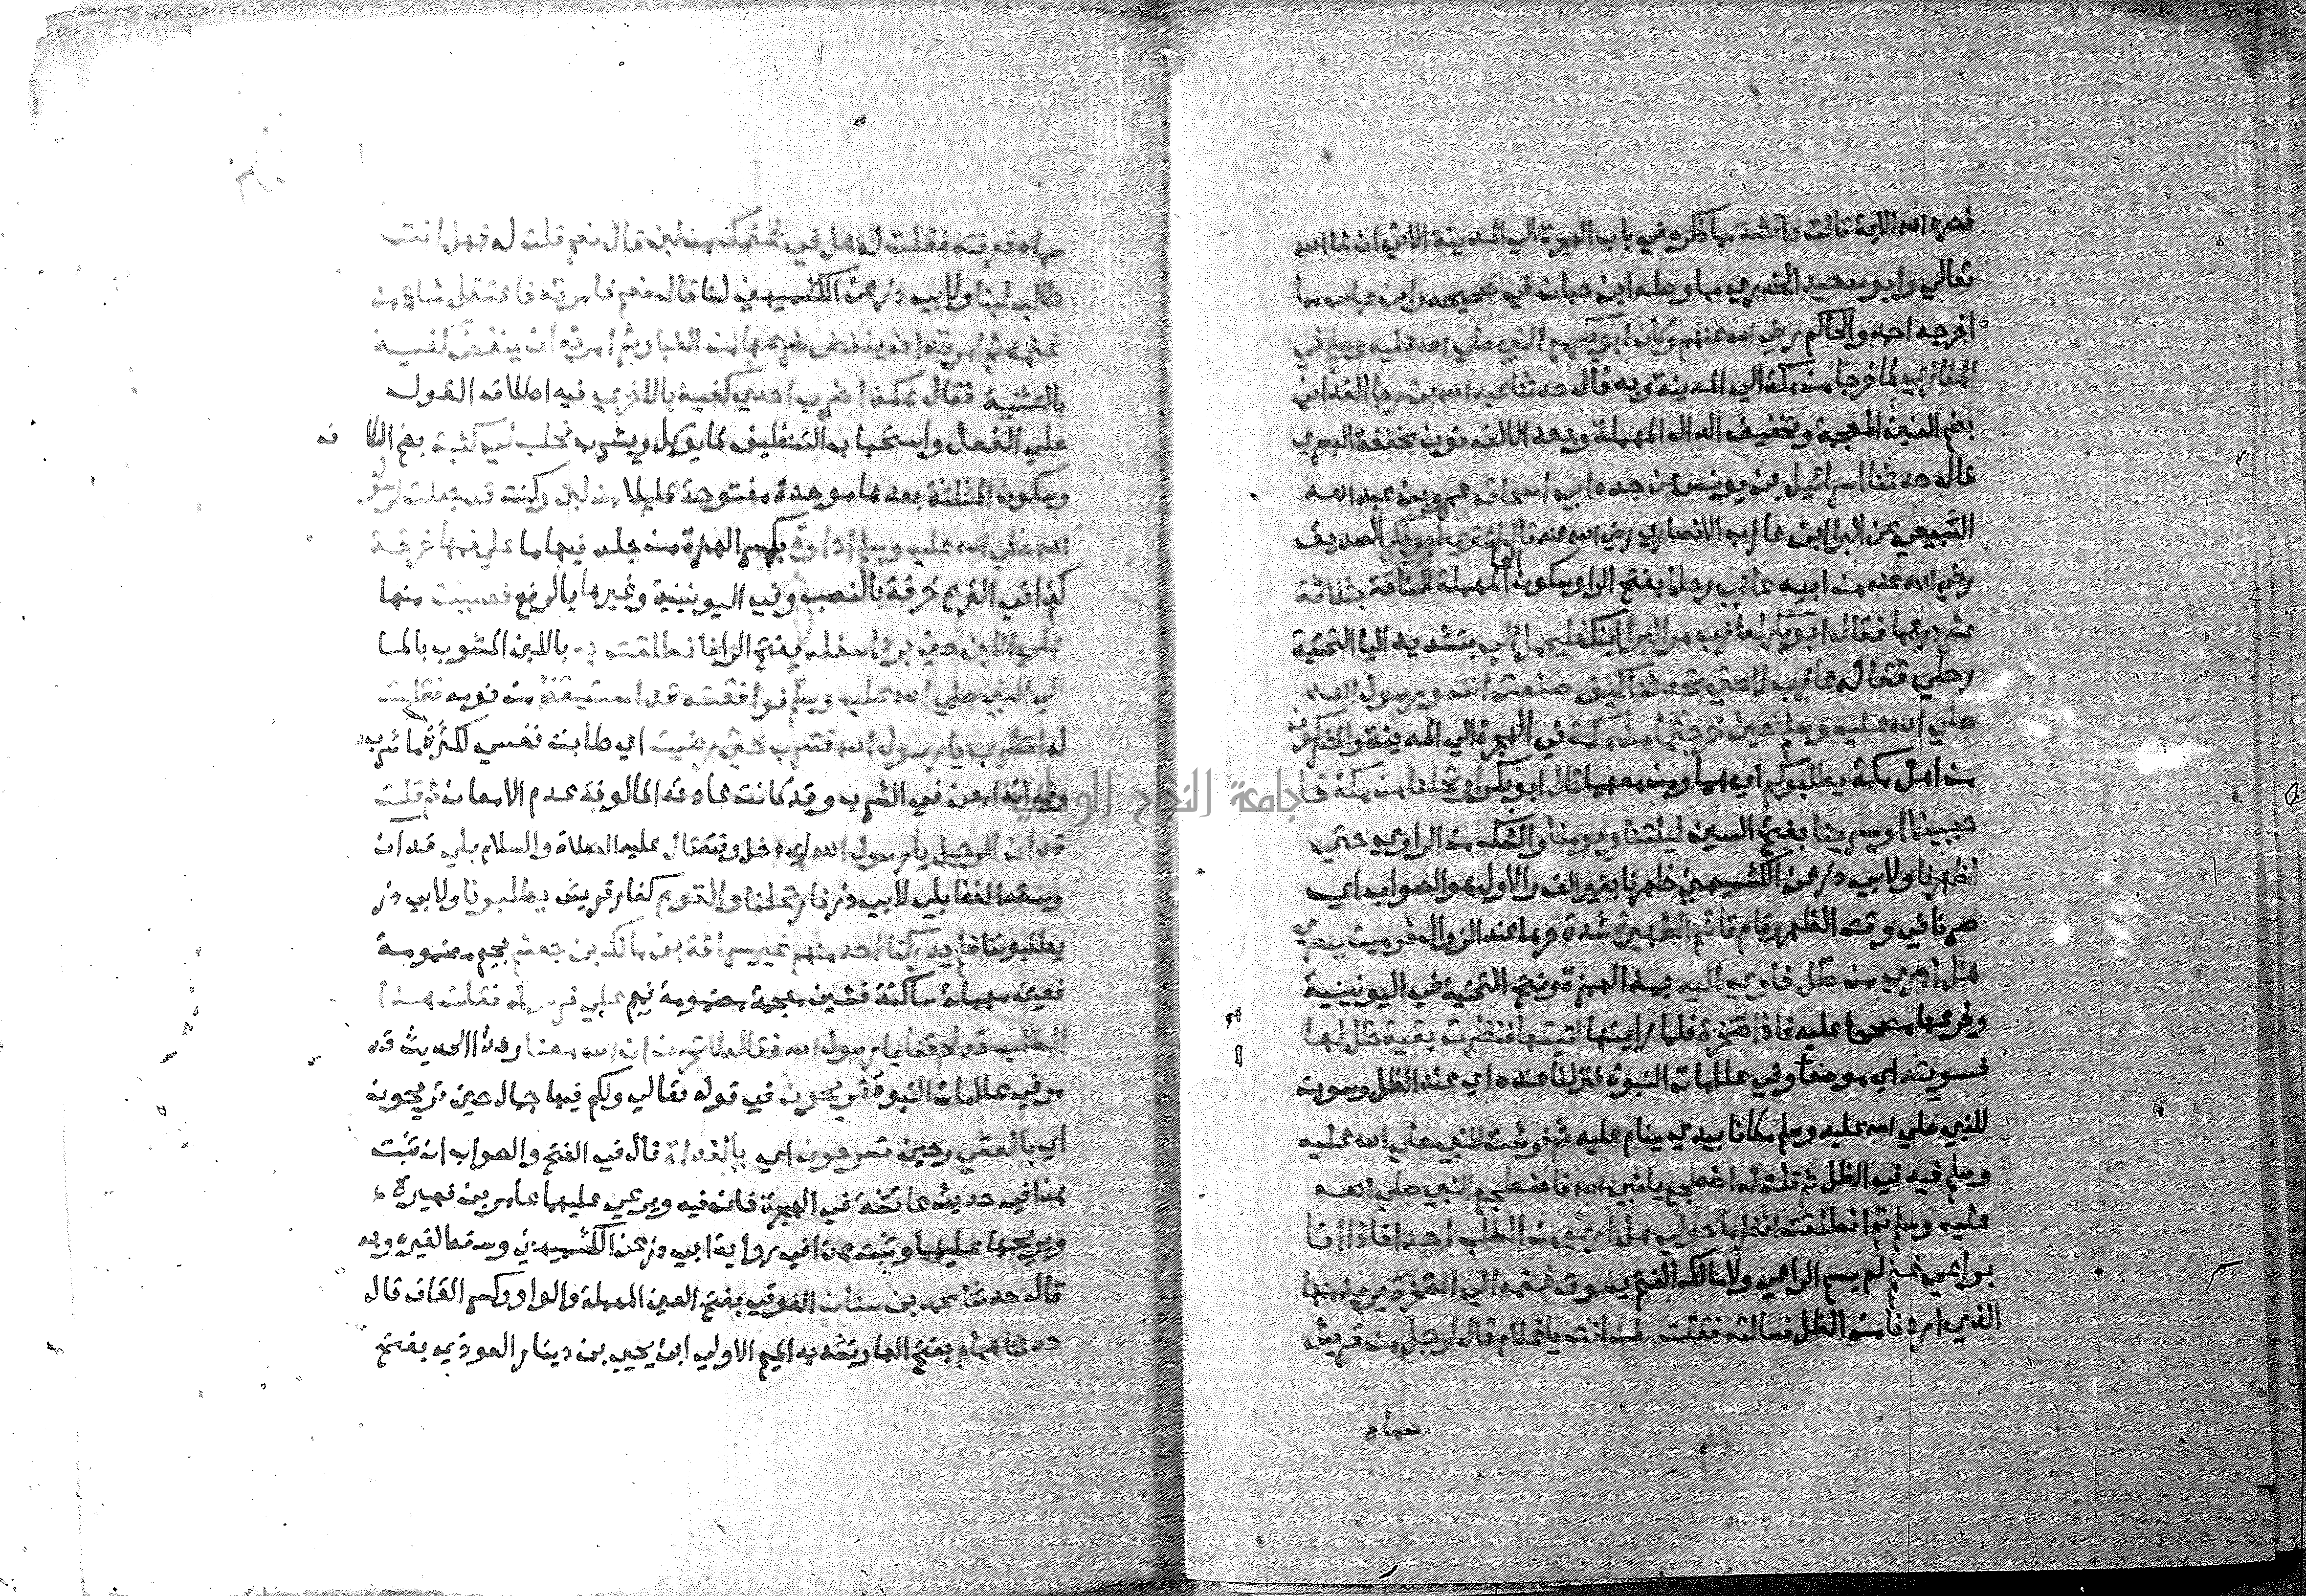 نصره الله الاية قالت عائشة مما ذكره في باب الهجرة الي المدينة الاتي ان شا الله
تعالي وابو سعيد الخدري مما وصله ابن حبان في صحيحه وابن عباس مما
اخرجه احمد والحاكم رضي الله عنهم وكان ابو بكر مع النبي صلي الله عليه وسلم في
الغار اي لما خرجا من مكة الي المدينة وبه قال حدثنا عبد الله بن رجا الغداني
بضم الغين المعجمة وتخفيف الدال المهملة وبعد الالف نون مخففة البصري
قال حدثنا اسرائيل بن يونس عن جده ابي اسحاق عمرو بن عبد الله
السبيعي عن البرا ابن عازب الانصاري رضي الله عنه قال اشتري ابو بكر الصديق
رضي الله عنه من ابيه عازب رحلا بفتح الرا وسكون الحا المهملة للناقة بثلاثة
عشر درهما فقال ابو بكر لعازب مر البرا ابنك فليحمل الي بتشديد اليا التحتية
رحلي فقال له عازب لا حتي تحدثنا كيف صنعت انت ورسول الله
صلي الله عليه وسلم حين خرجتما من مكة في الهجرة الي المدينة والمشركون
من اهل مكة يطلبوكم اي هما ومن معهما قال ابو بكر ارتحلنا من مكة فا
حيينا او سرينا بفتح السين ليلتنا ويومنا والشك من الراوي حتي
اظهرنا ولابي ذر عن الكشميهني ظهرنا بغير الف والاول هو الصواب اي
صرنا في وقت الظهر وقام قائم الظهيرة شدة حرها عند الزوال فرميت ببصري
هل اري من ظل فاوي اليه بمد الهمزة وفتح التحتية في اليونينية
وفرعها مصححا عليه فاذا صخرة فلما رايتها اتيتها فنظرت بقية ظل لها
فسويته اي موضعا وفي علامات النبوة فنزلنا عنده اي عند الظل وسويت
للنبي صلي الله عليه وسلم مكانا بيدي ينام عليه ثم فرشت للنبي صلي الله عليه
وسلم فيه في الظل ثم قلت له اضطجع يا نبي الله فاضطجع النبي صلي الله
عليه وسلم ثم انطلقت انظر ما حولي هل اري من الطلب احدا فاذا انا
براعي غنم لم يسم الراعي ولا مالك الغنم يسوق غنمه الي الصخرة يريد منها
الذي اردنا من الظل فسالته فقلت لمن انت يا غلام قال لرجل من قريش
سماه
سماه فعرفته فقلت له هل في غنمك من لبن قال نعم قلت له فهل انت
حالب لبنا ولابي ذر عن الكشميهني لنا قال نعم فامرته فاعتقل شاة من
غنمه ثم امرته ان ينفض ضرعها من الغبار ثم امرته ان ينفض كفيه
بالتثنية فقال هكذا ضرب احدي كفيه بالاخري فيه اطلاق القول
علي الفعل واستحباب التنظيف لما يوكل ويشرب فحلب لي كثبة بضم الكا فـ
وسكون المثلثة بعدها موحدة مفتوحة قليلا من لبن وكنت قد جعلت لرسول
الله صلي الله عليه وسلم اداوة بكسر الهمزة من جلد فيها ما علي فمها خرقة
كذا في الفرع خرقة بالنصب وفي اليونينية وغيرها بالرفع فصببت منها
علي اللبن حتي برد اسفله بفتح الرا فانطلقت به باللبن المشوب بالما
الي النبي صلي الله عليه وسلم فوافقته قد استيقظ من نومه فقلت
له اشرب يا رسول الله فشرب حتي رضيت اي طابت نفسي لكثرة ما شرب
وفيه انه امعن في الشرب وقد كانت عادته المالوفة عدم الامعان ثم قلت
قد ان الرحيل يا رسول الله اي دخل وقته قال عليه الصلاة والسلام بلي قد ان
وسقط لفظ بلي لابي ذر فارتحلنا والقوم كفار قريش يطلبونا ولابي ذر
يطلبوننا فلم يدركنا احد منهم غير سراقة بن مالك بن جعشم بجيم مضمومة
فعين مهملة ساكنة فشين معجمة مضمومة فيم علي فرس له فقلت هذا
الطلب قد لحقنا يا رسول الله فقال لا تحزن ان الله معنا وهذا الحديث قد
مر في علامات النبوة تريحون في قوله تعالي ولكم فيها جمال حين تريحون
اي بالعشي وحين تسرحون اي بالغداة قال في الفتح والصواب ان تثبت
هذا في حديث عائشة في الهجرة فان فيه ويرعي عليهما عامر بن فهيرة
ويريحها عليهما وثبت هذا في رواية ابي ذر عن الكشميهني وسقط لغيره وبه
قال حدثنا محمد بن سنان العوقي بفتح العين المهملة والواو وكسر القاف قال
حدثنا همام بفتح الها وتشديد الميم الاولي ابن يحيي بن دينار العوذي بفتح